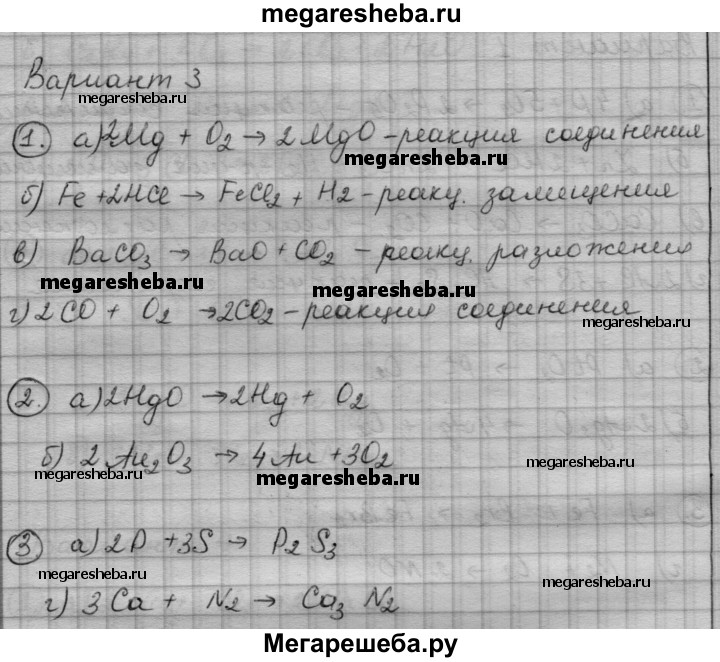 megaresheba.ru
Вариант 3
megaresheba.ru
1. а) 2Mg + O2 → 2MgO - реакция соединения
megaresheba.ru
megaresheba.ru
б) Fe + 2HCl → FeCl2 + H2 - реакц. замещения
в) BaCO3 → BaO + CO2 - реакц. разложения
megaresheba.ru
megaresheba.ru
г) 2CO + O2 → 2CO2 - реакция соединения
megaresheba.ru
2. а) 2HgO → 2Hg + O2
б) 2Au2O3 → 4Au + 3O2
megaresheba.ru
megaresheba.ru
megaresheba.ru
3 а) 2P + 3S → P2S3
megaresheba.ru
megaresheba.ru
г) 3Ca + N2 → Ca3N2
Мегарешеба.ру